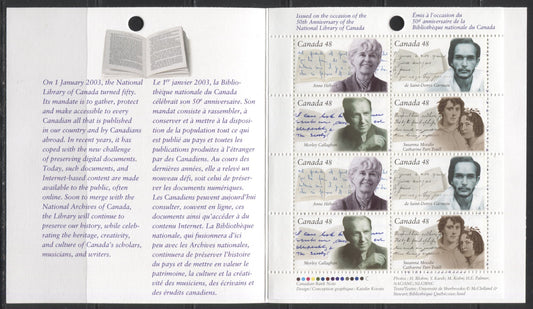 On 1 January 2003, the National
Library of Canada turned fifty.
Its mandate is to gather, protect
and make accessible to every
Canadian all that is published
in our country and by Canadians
abroad. In recent years, it has
coped with the new challenge
of preserving digital documents.
Today, such documents, and
Internet-based content are made
available to the public, often
online. Soon to merge with the
National Archives of Canada,
the Library will continue to
preserve our history, while celeb-
rating the heritage, creativity,
and culture of Canada's scholars,
musicians, and writers.
Le 1er janvier 2003, la Biblio-
thèque nationale du Canada
célébrait son 50e anniversaire. Son
mandat consiste à rassembler, à
conserver et à mettre à la disposi-
tion de la population tout ce qui
est publié au pays et toutes les
publications produites à l'étranger
par des Canadiens. Au cours des
dernières années, elle a relevé un
nouveau défi, soit celui de préser-
ver les documents numériques.
Les Canadiens peuvent aujourd'hui
consulter, souvent en ligne, ces
documents ainsi qu'accéder à du
contenu Internet. La Bibliothèque
nationale, qui fusionnera d'ici
peu avec les Archives nationales,
continuera de préserver l'histoire
du pays et de mettre en valeur le
patrimoine, la culture et la créati-
vité des musiciens, des écrivains et
des érudits canadiens.
Issued on the occasion of the
50th Anniversary of the
National Library of Canada
Émis à l'occasion du
50e anniversaire de la
Bibliothèque nationale du Canada
Canada 48
Canada 48
Anne Hébert
de Saint-Denys Garneau
Canada 48
Canada 48
Morley Callaghan
Susanna Moodie
Catharine Parr Traill
Canada 48
Canada 48
Anne Hébert
de Saint-Denys Garneau
Canada 48
Canada 48
Morley Callaghan
Susanna Moodie
Catharine Parr Traill
Canadian Bank Note
Design / Conception graphique : Katalin Kovats